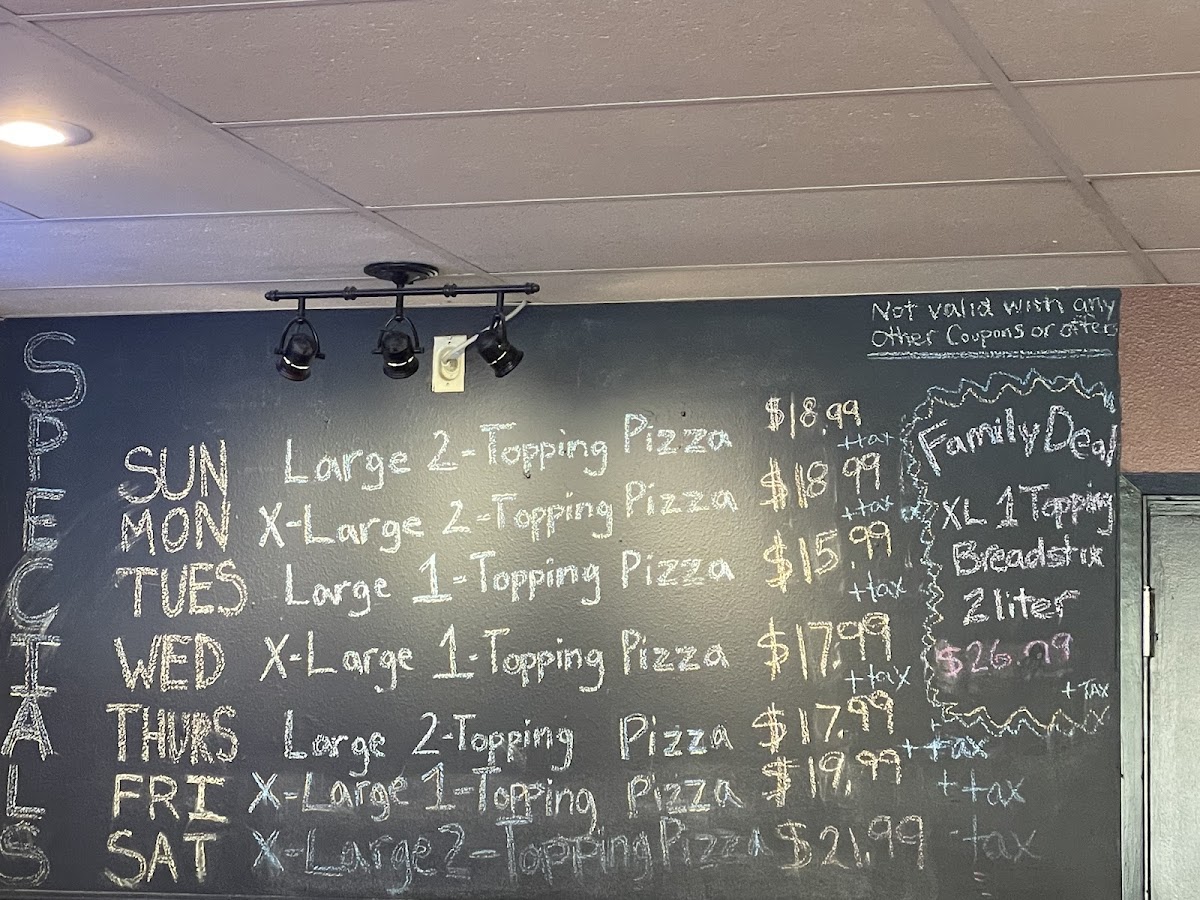 SPECIALS
Not valid with any
other Coupons or offers
SUN Large 2-Topping Pizza $18.99 +tax
MON X-Large 2-Topping Pizza $18.99 +tax
TUES Large 1-Topping Pizza $15.99 +tax
WED X-Large 1-Topping Pizza $17.99 +tax
THURS Large 2-Topping Pizza $17.99 +tax
FRI X-Large 1-Topping Pizza $19.99 +tax
SAT X-Large 2-Topping Pizza $21.99 +tax
Family Deal
XL 1 Topping
Breadstix
2 liter
$26.99
+TAX